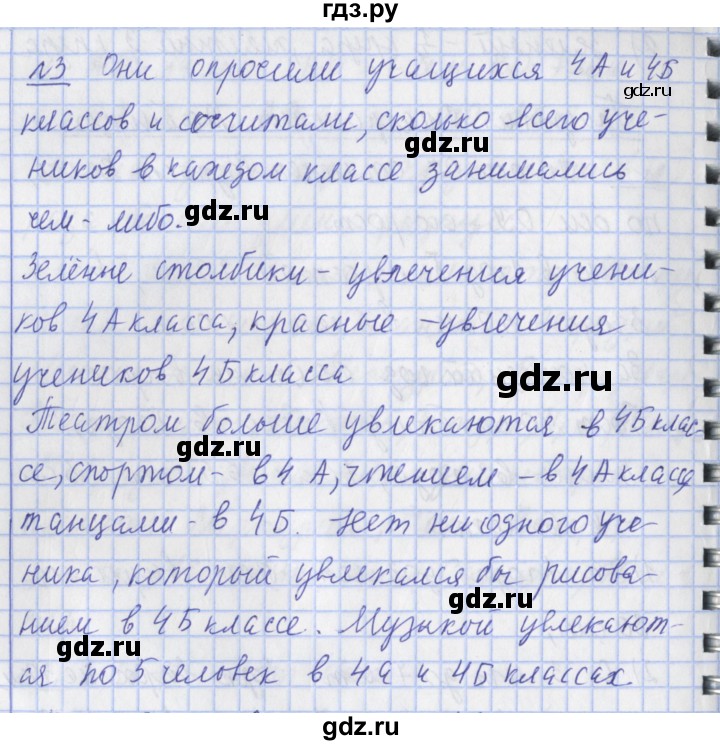 гдз.ру
№3 Они опросили учащихся 4А и 4Б
классов и сосчитали, сколько всего уче-
ников в каждом классе занимались
чем-либо.
Зелёные столбики - увлечения учени-
ков 4А класса, красные - увлечения
учеников 4Б класса
Театром больше увлекаются в 4Б клас-
се, спортом - в 4 А, чтением - в 4А классе,
танцами - в 4Б. Нет ни одного уче-
ника, который увлекался бы рисова-
нием в 4Б классе. Музыкой увлекают-
ся по 5 человек в 4а и 4Б классах.
gdz.ru
gdz.ru
gdz.ru
gdz.ru
gdz.ru
gdz.ru
gdz.ru
gdz.ru
gdz.ru